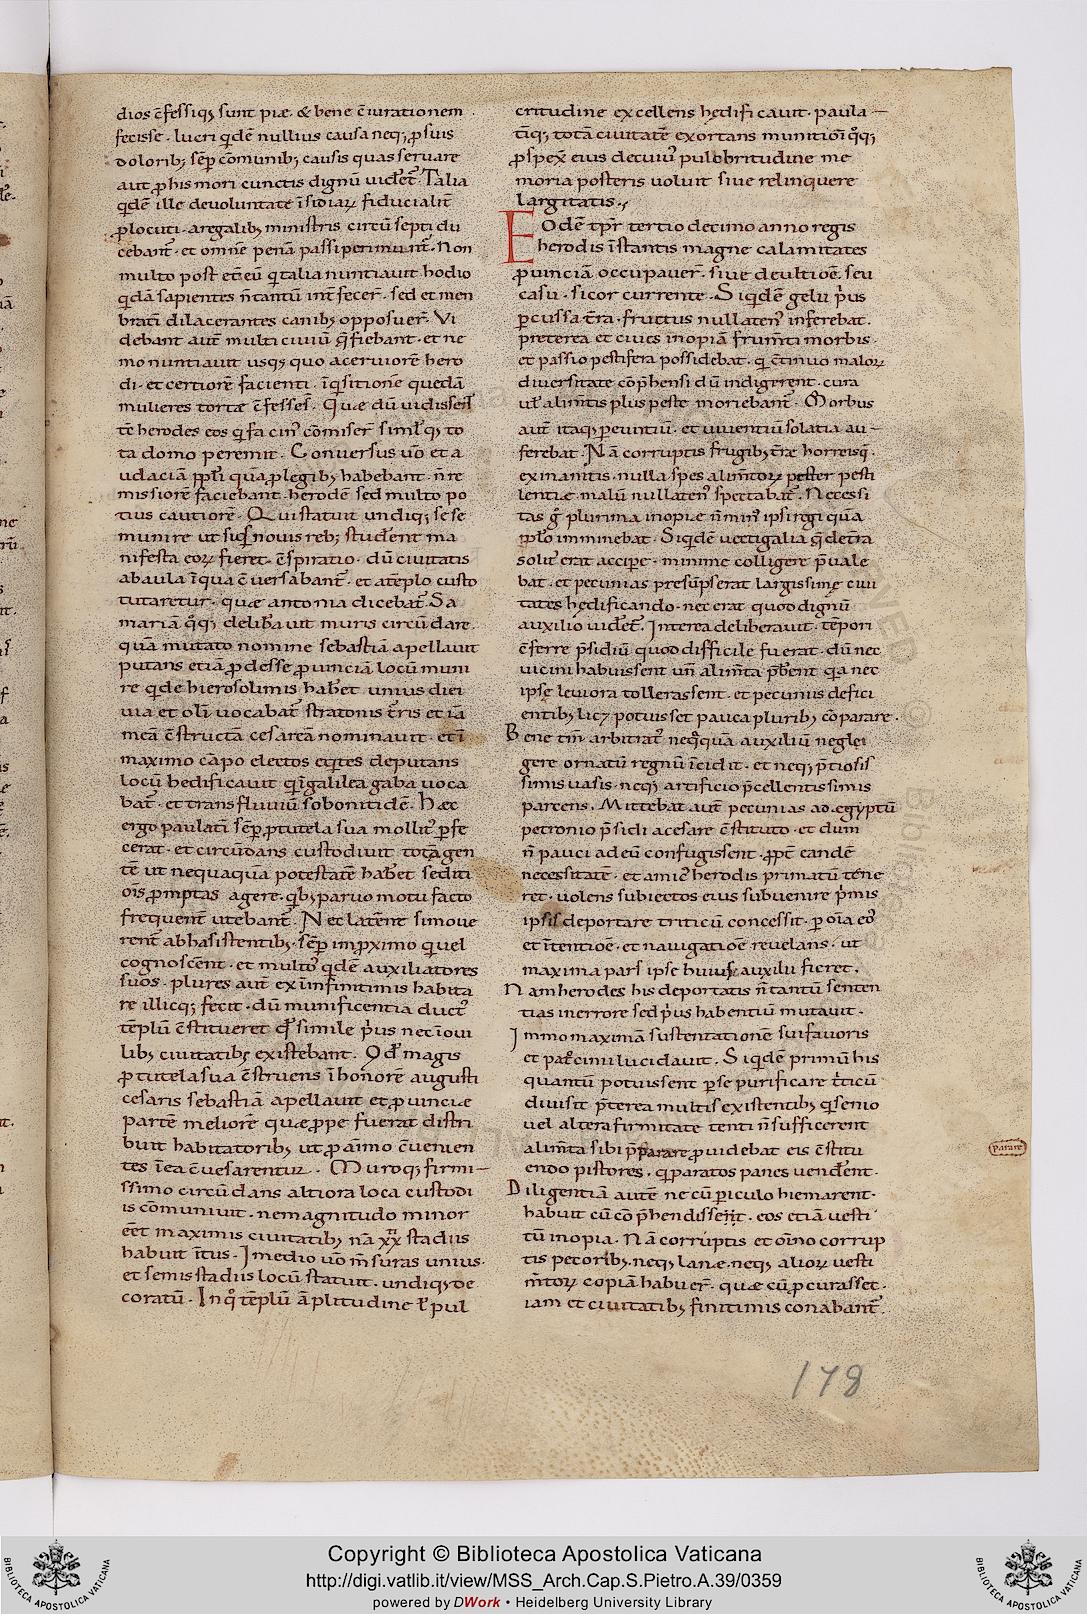 dios c̄fessiq; sunt piæ. & bene c̄iurationem
fecisse. lucri qdē nullius causa neq; ꝓsuis
dolorib; sēp cōmunib; causis quas seruare
aut ꝓhis mori cunctis dignū uidet̄. Talia
qdē ille deuoluntate īsidiarꝝ fiducialit̄
ꝓlocuti. aregalib; ministris circū septi du
cebant̄. et omnē penā passi perimunt̄. Non
multo post et̄ eū q talia nuntiauit hodio
qdā sapientes n̄tantū int̄fecer̄. sed et men
bratī dilacerantes canib; opposuer̄. Vi
debant aut̄ multi ciuiū q̄ fiebant. et ne
mo nuntiauit usq; quo aceruiorē hero
di. et certiorē facienti. īqsitione quedā
mulieres tortæ c̄fesseſ. Quæ dū uidissent
tē herodes eos
ta domo peremit. Conuersus uō et a
udaciā ppli quā ꝓlegib; habebant. n̄re
missiorē faciebant. herodē sed multo po
tius cautiorē. Qui statuit undiq; se se
munire ut nouis reb; student̄ ma
nifesta eorꝝ fieret. c̄spiratio. dū ciuitatis
abaula īqua c̄uersabant̄. et atēplo custo
tutaretur. quæ antonia dicebat̄. Sa
mariā qq; deliƀauit muris circū dare.
quā mutato nomine sebastiā apellauit
putans etiā ꝓdesse ꝓuinciā locū muni
re qde hierosolimis haƀet unius diei
uia et olī uocabat̄ stratonis t̄ris et iā
meā c̄structā cesareā nominauit. et ī
maximo cāpo electos eqtes deputans
locū hedificauit qīgalilea gaba uoca
bat̄. et trans fluuiū sobonitidē. Hæc
ergo paulatī sēp ꝓtutela sua mollit̄ pfe
cerat. et circūdans custodiuit totā gen
tē ut nequaquā potestatē haƀet sediti
oīs ꝓmptas agere. qb; paruo motu facto
frequent̄ utebant̄. Nec latent̄ simoue
rent̄ abhasistentib; sēp imꝓximo q uel
cognoscent̄. et multo qdē auxiliatores
suos. plures aut̄ ex īnfinitimis habita
re illicq; fecit. dū munificentia duct̄
tēplū c̄stitueret simile p̄us nec īoui
lib; ciuitatib; existebant. Qđ magis
ꝓtutela sua c̄struens ī honorē augusti
cesaris sebastiā apellauit et ꝓuinciæ
partē meliorē quæ ꝓpe fuerat distri
buit habitatorib; ut ꝓ aīmo c̄uenien
tes īea c̄uesarentur. Muroq; firmi
ssimo circū dans altiora loca custodi
is cōmuniuit. ne magnitudo minor
eēt maximis ciuitatib; nā xx̄ stadiis
habuit ītus. Imedio uō m̄suras unius.
et semis stadiis locū statuit. undiq; de
coratū. In q̊ tēplū āplitudine ł pul
critudine excellens hędificauit. paula
tīq; totā ciuitatē exortans munitiōī qq;
ꝓspex̄ eius decuiu pulchritudine me
moria posteris uoluit siue relinquere
largitatis.
Eodē tpr̄ tertio decimo anno regis
herodis īstantis magne calamitates
ꝓuinciā occupauer̄. siue deultiōē. seu
casu. sicor currente. Siqdē gelu p̄us
pcussa t̄ra. fructus nullaten̄ inferebat.
preterea et ciues inopiā frum̄ti morbis.
et passio pestifera possidebat. q c̄tinuo malorꝝ
diuersitate cōp̄hensi dū indigerent. cura
uł alim̄tis plus peste moriebant̄. Morbus
aut̄ itaq; peuntiū. et uiuentiū solatia au
ferebat. Nā corruptis frugib; t̄ræ horreisq.
exinanitis. nulla spes alim̄torꝝ pester pesti
lentiæ malū nullaten̄ spectabat̄. Necessi
tas g̊ plurima inopiæ n̄ min̄ ipsi regi quā
pplo imminebat. Siqdē uectigalia q̄ det̄ra
solit̄ erat accipe. minime colligere p̄uale
bat. et pecunias presūpserat largissime ciui
tates hędificando. nec erat quod dignū
auxilio uidet̄. Interea deliberauit. tēpori
c̄ferre p̄sidiū quod difficile fuerat. dū nec
uicini habuissent un̄ alim̄ta p̄ƀent qa nec
ipse leuiora tollerassent. et pecuniis defici
entib; lic; potuisset pauca plurib; cōparare.
Bene tm̄ arbitrat̄ neqquā auxiliū neglei
gere ornatū regnū īcidit. et neq; p̄tiosis
simis uasis. neq; artificio p̄cellentissimis
parcens. Mittebat aut̄ pecunias ad egyptū
petronio p̄sidi acesare c̄stituto. et dum
n̄ pauci ad eū confugissent. ꝓpt̄ eandē
necessitatē. et amic̄ herodis primatū tēne
ret. uolens subiectos eius subuenire p̄mis
ipsis deportare triticū concessit. p oīa eo
et ītentiōē. et nauigatiōē reuelans. ut
maxima pars ipse huius auxilii fieret.
Nam herodes his deportatis n̄tantū senten
tias in errore sed p̄us habentiū mutauit.
Immo maximā sustentationē sui fauoris
et pat̄cini lucidauit. Siqdē primū his
quantū potuissent pse purificare t̄ticū
diuisit p̄terea multis existentib; q senio
uel altera firmitate tenti n̄ sufficerent
alim̄ta sibi p̄parare ꝓuidebat eis c̄stitu
endo pistores. q paratos panes uendent̄.
parare
Diligentiā autē ne cū piculo hiemarent.
habuit cū cōp̄hendissent. eos etiā uesti
tū inopia. Nā corruptis et oīno corrup
tis pecorib; neq; lanæ. neq; aliorꝝ uesti
m̄torꝝ copiā habuer̄. quæ cū ꝓcurasset.
iam et ciuitatib; finitimis conabant̄.
178
Copyright © Biblioteca Apostolica Vaticana
http://digi.vatlib.it/view/MSS_Arch.Cap.S.Pietro.A.39/0359
powered by DWork • Heidelberg University Library